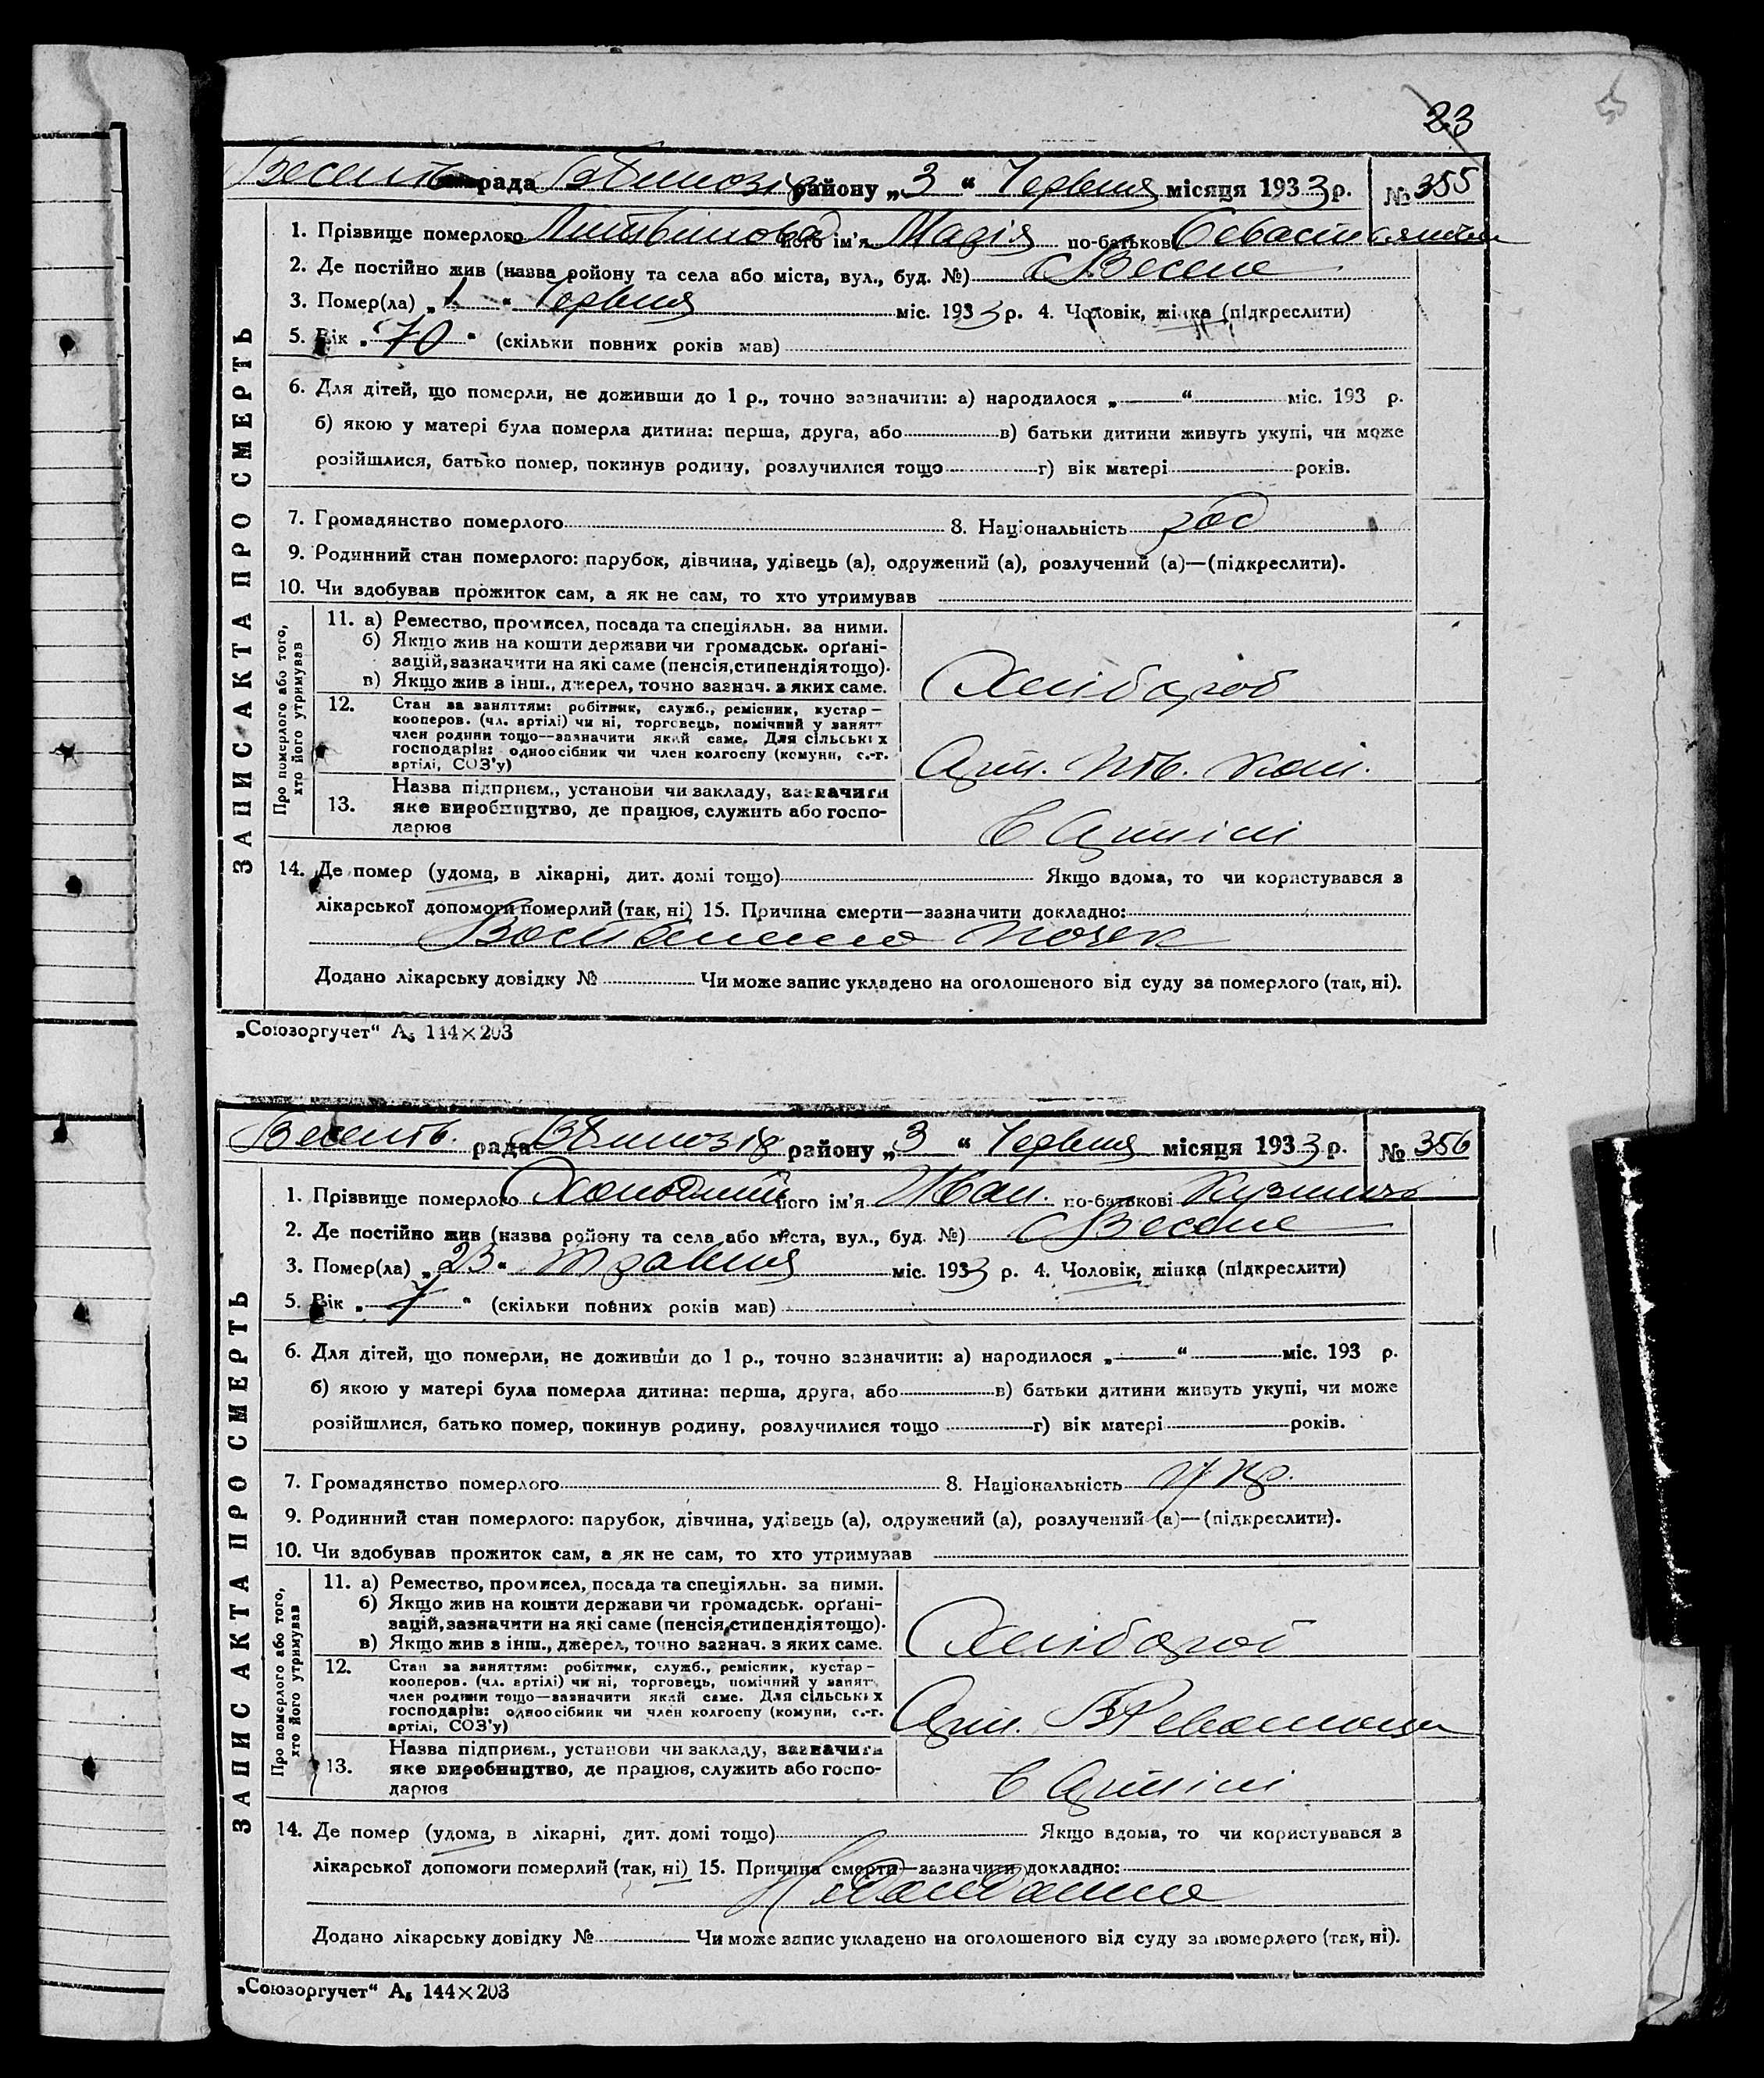 23
рада района „3“ Червня місяця 1933 р. № 355
1. Прізвище померлого Литвінова його ім'я Марія по-батькові
2. Де постійно жив (назва району та села або міста, вул., буд. №) с Веселе
3. Помер(ла) „1“ Червня міс. 1933 р. 4. Чоловік, жінка (підкреслити)
5. Вік „70“ (скільки повних років мав)
6. Для дітей, що померли, не доживши до 1 р., точно зазначити: а) народилося „ “ міс. 193 р.
б) якою у матері була померла дитина: перша, друга, або в) батьки дитини живуть укупі, чи може
розійшлися, батько помер, покинув родину, розлучилися тощо г) вік матері років.
7. Громадянство померлого 8. Національність рос
9. Родинний стан померлого: парубок, дівчина, удівець (а), одружений (а), розлучений (а)—(підкреслити).
10. Чи здобував прожиток сам, а як не сам, то хто утримував
ЗАПИС АКТА ПРО СМЕРТЬ
Про померлого або того,
хто його утримував
11. а) Ремество, промисел, посада та спеціяльн. за ними.
б) Якщо жив на кошти держави чи громадськ. орґані-
зацій, зазначити на які саме (пенсія, стипендія тощо).
в) Якщо жив з інш., джерел, точно зазнач. з яких саме.
Хлібороб
12. Стан за заняттям: робітник, служб., ремісник, кустар—
кооперов. (чл. артілі) чи ні, торговець, помічний у занятт
член родини тощо—зазначити який саме. Для сільських
господарів: одноосібник чи член колгоспу (комуни, с.-г.
артілі, СОЗ'у)
Арт.
13. Назва підприєм., установи чи закладу, зазначити
яке виробництво, де працює, служить або госпо-
дарює
в Артілі
14. Де помер (удома, в лікарні, дит. домі тощо) Якщо вдома, то чи користувався з
лікарської допомоги померлий (так, ні) 15. Причина смерти—зазначити докладно:
почек
Додано лікарську довідку № Чи може запис укладено на оголошеного від суду за померлого (так, ні).
„Союзоргучет“ А₅ 144×203
рада району „3“ Червня місяця 1933 р. № 356
1. Прізвище померлого Холодний його ім'я Иван. по-батькові Кузьмич
2. Де постійно жив (назва району та села або міста, вул., буд. №) с Веселе
3. Помер(ла) „23“ травня міс. 1933 р. 4. Чоловік, жінка (підкреслити)
5. Вік „7“ (скільки повних років мав)
6. Для дітей, що померли, не доживши до 1 р., точно зазначити: а) народилося „ “ міс. 193 р.
б) якою у матері була померла дитина: перша, друга, або в) батьки дитини живуть укупі, чи може
розійшлися, батько помер, покинув родину, розлучилися тощо г) вік матері років.
7. Громадянство померлого 8. Національність Укр.
9. Родинний стан померлого: парубок, дівчина, удівець (а), одружений (а), розлучений (а)—(підкреслити).
10. Чи здобував прожиток сам, а як не сам, то хто утримував
ЗАПИС АКТА ПРО СМЕРТЬ
Про померлого або того,
хто його утримував
11. а) Ремество, промисел, посада та спеціяльн. за ними.
б) Якщо жив на кошти держави чи громадськ. орґані-
зацій, зазначити на які саме (пенсія, стипендія тощо).
в) Якщо жив з інш., джерел, точно зазнач. з яких саме.
Хлібороб
12. Стан за заняттям: робітник, служб., ремісник, кустар—
кооперов. (чл. артілі) чи ні, торговець, помічний у занят
член родини тощо—зазначити який саме. Для сільських
господарів: одноосібник чи член колгоспу (комуни, с.-г.
артілі, СОЗ'у)
Арт.
13. Назва підприєм., установи чи закладу, зазначити
яке виробництво, де працює, служить або госпо-
дарює
в Артілі
14. Де помер (удома, в лікарні, дит. домі тощо) Якщо вдома, то чи користувався з
лікарської допомоги померлий (так, ні) 15. Причина смерти—зазначити докладно:
Додано лікарську довідку № Чи може запис укладено на оголошеного від суду за померлого (так, ні).
„Союзоргучет“ А₅ 144×203